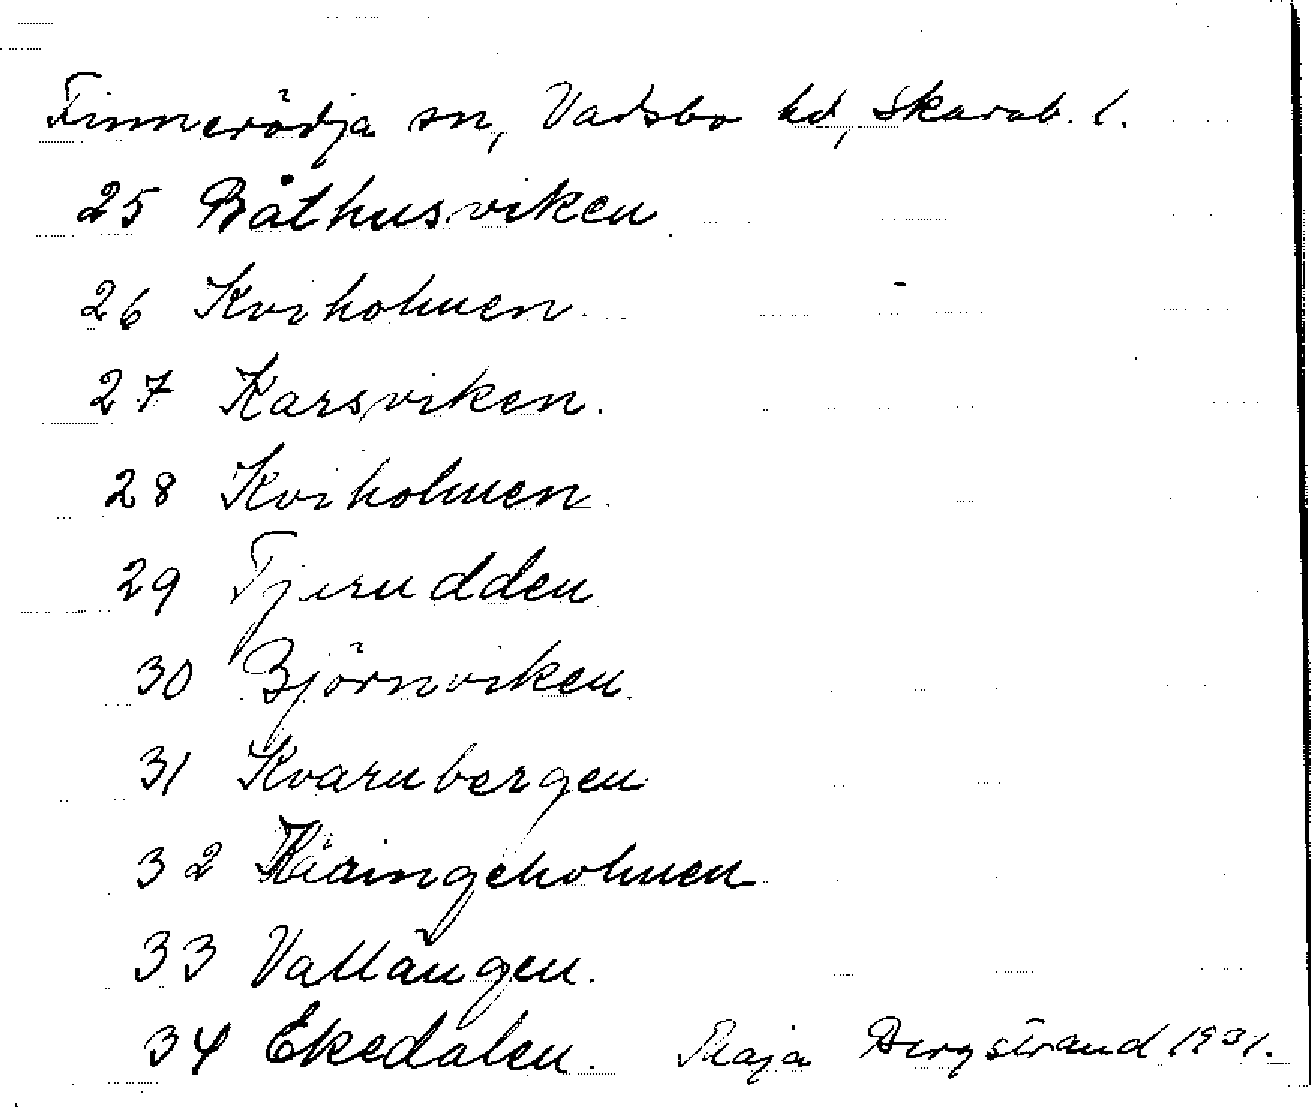 Finnerödja sn, Vadsbo hd, Skarab. l.
25 Båthusviken
26 Kviholmen
27 Karsviken.
28 Kviholmen
29 Tjerudden
30 Björnviken
31 Kvarnbergen
32 Käringeholmen
33 Vallängen.
34 Ekedalen. Maja Bergstrand 1931.